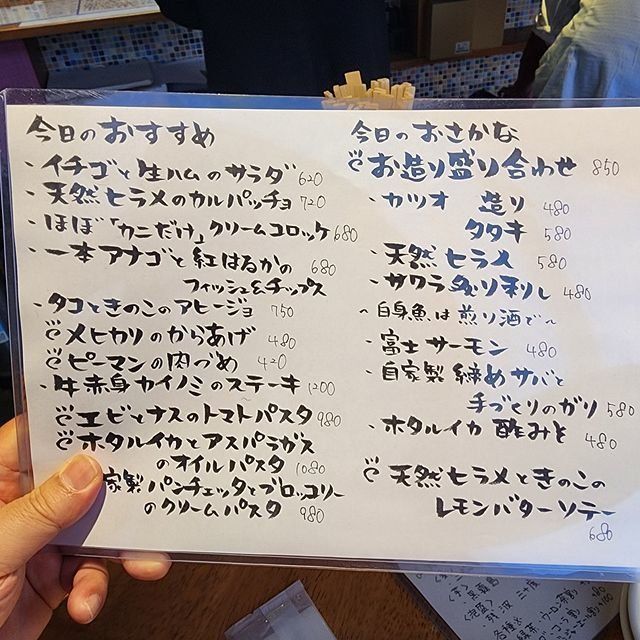 今日のおすすめ
・イチゴと生ハムのサラダ 620
・天然ヒラメのカルパッチョ 720
・ほぼ「カニだけ」クリームコロッケ 680
・一本アナゴと紅はるかの 680
フィッシュ&チップス
・タコときのこのアヒージョ 750
メヒカリのからあげ 480
ピーマンの肉づめ 420
・牛赤身カイノミのステーキ 1200
エビとナスのトマトパスタ 980
ホタルイカとアスパラガス
のオイルパスタ 1080
家製パンチェッタとブロッコリー
のクリームパスタ 980
今日のおさかな
お造り盛り合わせ 850
・カツオ 造り 480
タタキ 580
・天然ヒラメ 580
・サワラ炙り刺し 480
〜白身魚は煎り酒で〜
・富士サーモン 480
・自家製 締めサバと
手づくりのガリ 580
・ホタルイカ 酢みそ 480
天然ヒラメときのこの
レモンバターソテー
680